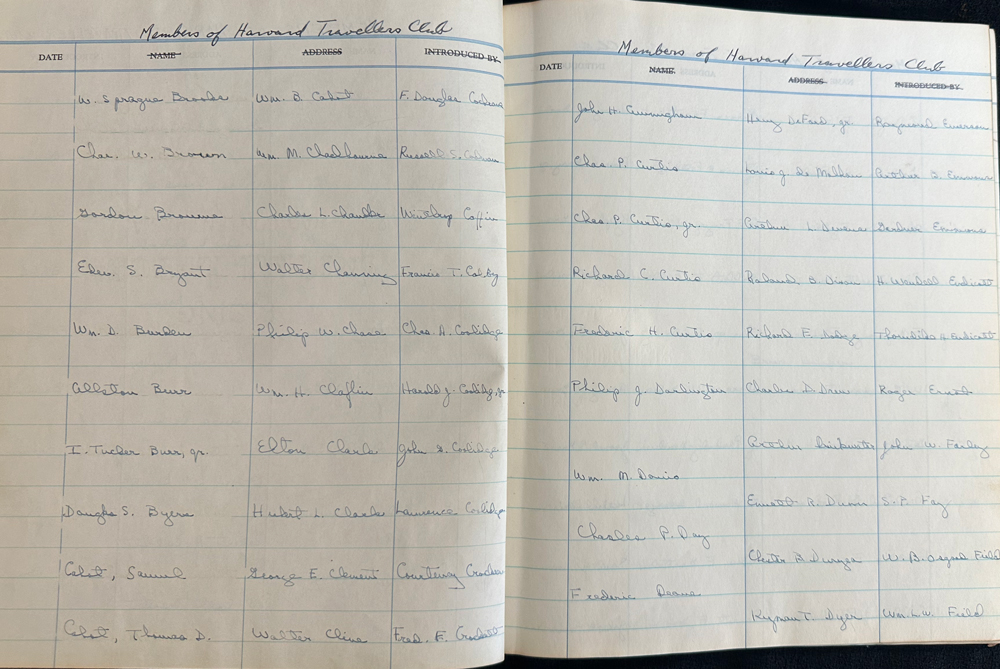 Members of Harvard Travellers Club
DATE NAME ADDRESS INTRODUCED BY
W. Sprague Brooks Wm. B. Cabot F. Douglas Cochrane
Chas. W. Brown Wm. M. Chadbourne Russell S.
Gordon Browne Charles L. Chandler Winthrop Coffin
Edw. S. Bryant Walter Channing Francis T. Colby
Wm. D. Burden Philip W. Chase Chas. A. Coolidge
Allston Burr Wm. H. Claflin Harold J. Coolidge, jr
I. Tucker Burr, jr. Elton Clark John G. Coolidge
Douglas S. Byers Hubert L. Clark Lawrence Coolidge
Cabot, Samuel George E. Clement Courtenay Crocker
Cabot, Thomas D. Walter Cline Fred. E. Crockett
Members of Harvard Travellers Club
DATE NAME ADDRESS INTRODUCED BY
John H. Cunningham Henry DeFord, jr. Raymond Emerson
Chas. P. Curtis Louis J. de Milhau Arthur B. Emmons
Chas. P. Curtis, jr. Arthur L. Devens Gardner Emmons
Richard C. Curtis Roland B. Dixon H. Wendell Endicott
Frederic H. Curtiss Richard E. Dodge Thorndike Endicott
Philip J. Darlington Charles D. Drew Roger Ernst
Arthur Drinkwater John W. Farley
Wm. M. Davis
Emmett R. Dunn S. P. Fay
Charles P. Day
Chester B. W. B. Osgood Field
Frederic Deane
Kynan T. Dyer Wm. L. W. Field